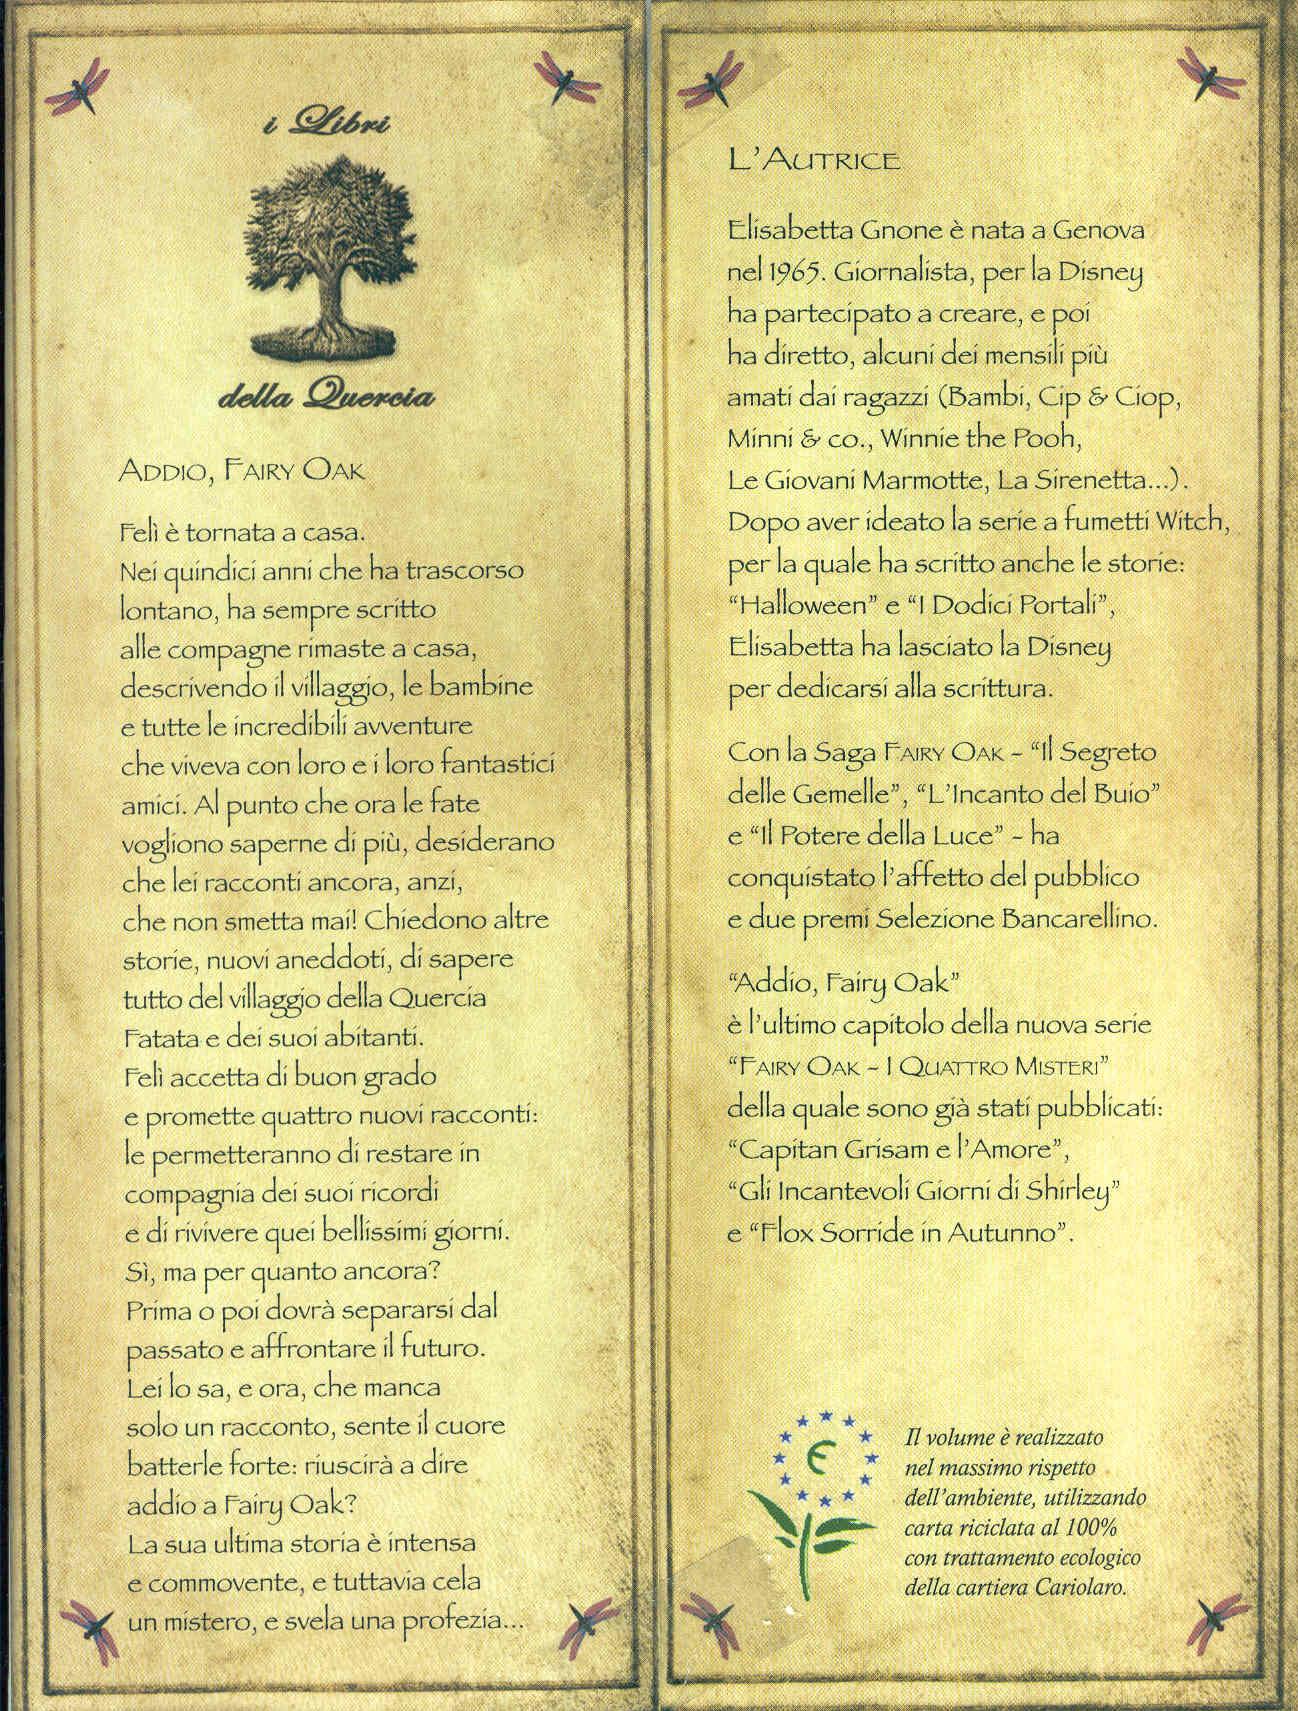 i Libri
della Quercia
Addio, Fairy Oak
Felì è tornata a casa.
Nei quindici anni che ha trascorso
lontano, ha sempre scritto
alle compagne rimaste a casa,
descrivendo il villaggio, le bambine
e tutte le incredibili avventure
che viveva con loro e i loro fantastici
amici. Al punto che ora le fate
vogliono saperne di più, desiderano
che lei racconti ancora, anzi,
che non smetta mai! Chiedono altre
storie, nuovi aneddoti, di sapere
tutto del villaggio della Quercia
Fatata e dei suoi abitanti.
Felì accetta di buon grado
e promette quattro nuovi racconti:
le permetteranno di restare in
compagnia dei suoi ricordi
e di rivivere quei bellissimi giorni.
Sì, ma per quanto ancora?
Prima o poi dovrà separarsi dal
passato e affrontare il futuro.
Lei lo sa, e ora, che manca
solo un racconto, sente il cuore
batterle forte: riuscirà a dire
addio a Fairy Oak?
La sua ultima storia è intensa
e commovente, e tuttavia cela
un mistero, e svela una profezia...
L'Autrice
Elisabetta Gnone è nata a Genova
nel 1965. Giornalista, per la Disney
ha partecipato a creare, e poi
ha diretto, alcuni dei mensili più
amati dai ragazzi (Bambi, Cip & Ciop,
Minni & co., Winnie the Pooh,
Le Giovani Marmotte, La Sirenetta...).
Dopo aver ideato la serie a fumetti Witch,
per la quale ha scritto anche le storie:
“Halloween” e “I Dodici Portali”,
Elisabetta ha lasciato la Disney
per dedicarsi alla scrittura.
Con la Saga Fairy Oak – “Il Segreto
delle Gemelle”, “L'Incanto del Buio”
e “Il Potere della Luce” – ha
conquistato l'affetto del pubblico
e due premi Selezione Bancarellino.
“Addio, Fairy Oak”
è l'ultimo capitolo della nuova serie
“Fairy Oak – I Quattro Misteri”
della quale sono già stati pubblicati:
“Capitan Grisam e l'Amore”,
“Gli Incantevoli Giorni di Shirley”
e “Flox Sorride in Autunno”.
Il volume è realizzato
nel massimo rispetto
dell'ambiente, utilizzando
carta riciclata al 100%
con trattamento ecologico
della cartiera Cariolaro.